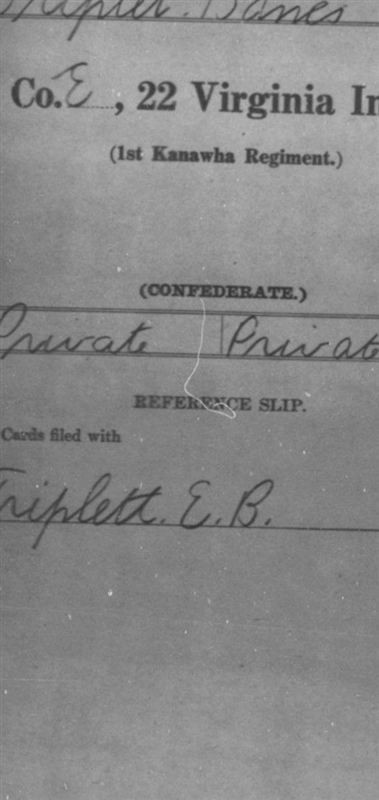 Co. E, 22 Virginia In
(1st Kanawha Regiment.)
(CONFEDERATE.)
Private Private
REFERENCE SLIP.
Cards filed with
Triplett. E. B.